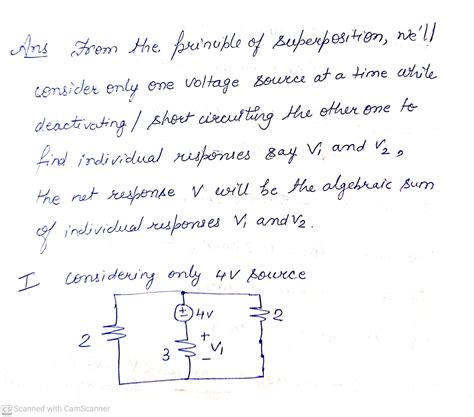 Ans From the prinuple of superposition, we'll
consider only one voltage source at a time while
deactivating / short circuiting the other one to
find individual responses say V₁ and V₂,
the net response V will be the algebraic sum
of individual responses V₁ and V₂.
I considering only 4V source
± 4V
2
2
+
3 V₁
−
CS Scanned with CamScanner